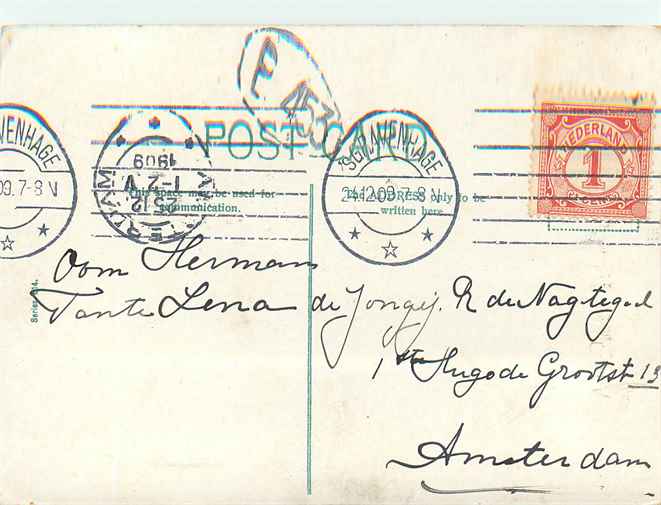 P 453
POST CARD
'SGRAVENHAGE
24.12.09.7-8 V
VENHAGE
09.7-8 V
1909
1-2 V
23-12
NEDERLAND
1
This space may be used for
communication.
The ADDRESS only to be
written here
Oom Herman
Tante Lena
de Jongej. R de Nagtegaal
1ste Hugo de Grootst 13
Amsterdam